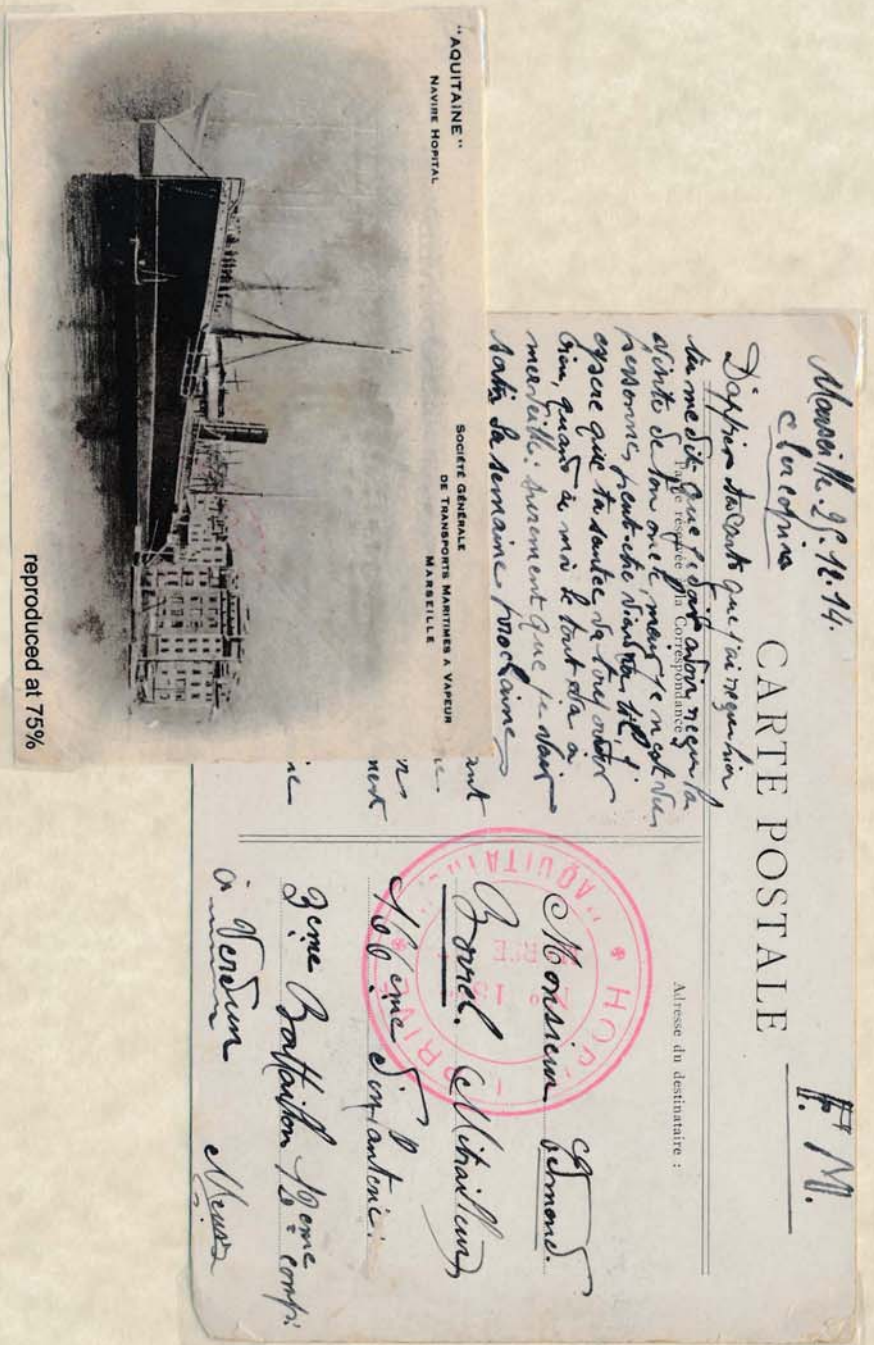 "AQUITAINE"
NAVIRE HOPITAL
SOCIÉTÉ GÉNÉRALE
DE TRANSPORTS MARITIMES A VAPEUR
MARSEILLE
reproduced at 75%
CARTE POSTALE
F. M.
Partie réservée à la Correspondance
Adresse du destinataire :
Marseille. 25. 12. 14.
D'après ta carte que j'ai reçu hier
tu me dit que je dois avoir reçu la
visite de ton oncle, mais je n'est vu
personne, peut-être viendra-t-il, j'
espère que ta santée va toujour
bien, quand à moi le tout va à
merveille. Surement que je vais
sortir la semaine prochaine
ant
ne
HOP
"AQUITAINE"
N° 18
Monsieur
Borrel. Mitrailleur
166ème d'infanterie.
3ème Battaillon 12ème comp:
à Verdun
Meuse